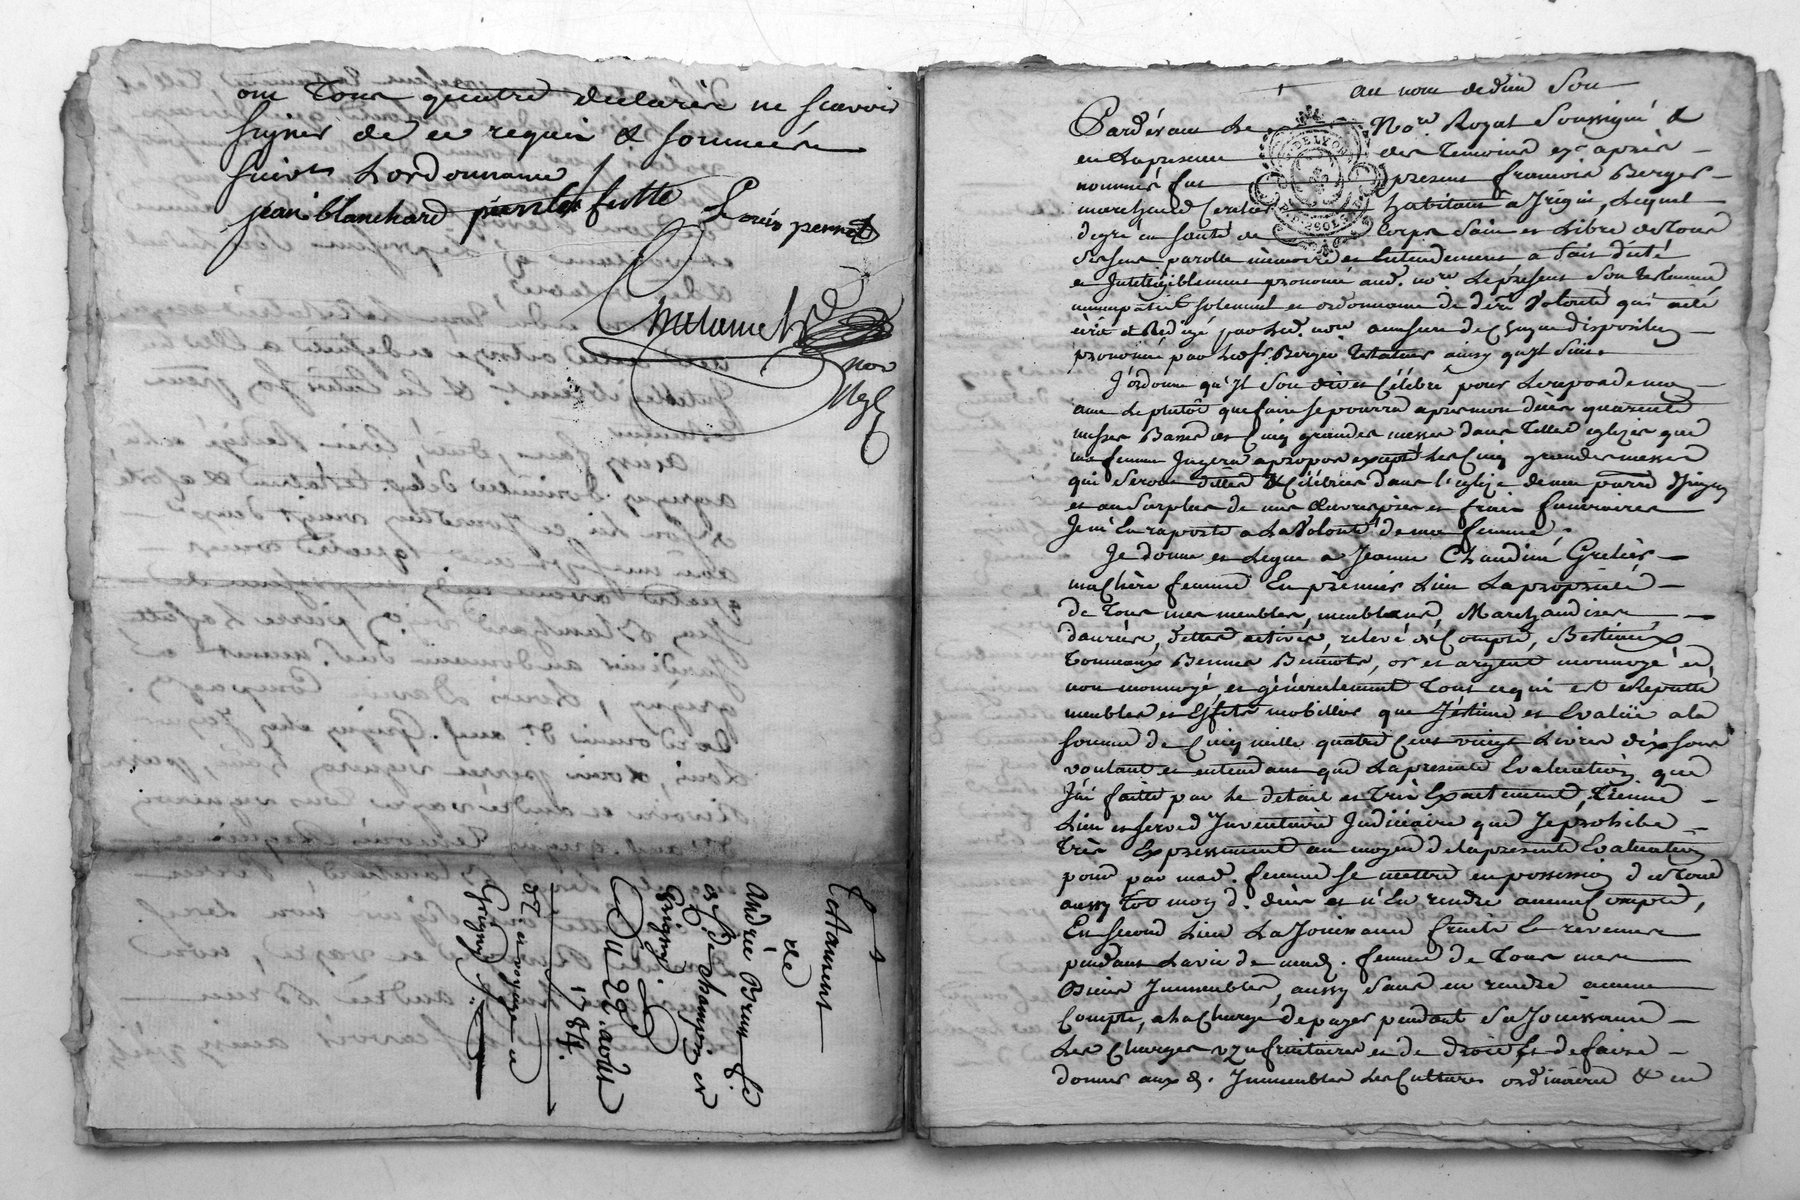 ont tous quatre declarés ne scavoir
signer de ce requis & sommés
suivt Lordonnance
jean blanchard pierre lafutte Louis pernet
Chalamel
nore
Testament
de
André Brun fr.
Grigny
Du 22 aoust
1784.
Grigny
au nom de dieu soit
DELYON
Pardevant Le Nore Royal soussigné &
en La presence des Temoins cy après
nommés fut present francois Berger
marchand habitant à Irigni, Lequel
degré en santé de Corps sain et Libre de tous
ses sens parolle mémoire et Entendement a fait dicté
et Inteligiblement prononcé aud. nore Le présent son Testament
nuncupatif solemnel et ordonnance de derre volonté qui a été
écrit et Redigé par led. nore a mesure de chaque disposition
prononcée par Led. sr. Berger testateur ainsy qu'Il suit.
J'ordonne qu'Il soit dit et Célébré pour Le repos de mon
ame Le plutôt que faire se pourra après mon décès quarante
messes Basses et Cinq grandes messes dans Telles eglizes que
ma femme Jugera apropos excepté Les Cinq grandes messes
qui seront dittes & Célébrées dans l'eglize de ma parroisse d'Irigny
et au surplus de mes œuvres pies et frais funeraires
Je m'en raporte a La Volonté de ma femme.
Je donne et Legue a Jeanne Claudine Grelier
ma Chère femme En premier Lieu La proprieté
de Tous mes meubles, meublans, Marchandises
danrées, dettes actives, relevé de Compte, Bestiaux
Tonneaux Bennes Bennots, or et argent monnoyé et
non monnoyé et généralement Tout ce qui est Reputté
meubles et Effets mobiliers que J'estime et Evalüe a la
somme de Cinq mille quatre Cent vingt Livres dix sous
voulant et entendant que La presente Evaluation que
J'ai faitte par Le détail et Très Exactement, Tienne
Lieu et serve d'Inventaire Judiciaire que Je prohibe
Très Expressement au moyen de La presente Evaluation
pour par mad. femme se mettre en possession du Tout
aussy tôt mon d. décès et n'En rendre aucun Compte,
En second Lieu La Jouissance fruits & revenus
pendant La vie de mad. femme de Tous mes
Biens Immeubles, aussy sans en rendre aucun
Compte, a La Charge de payer pendant sa Jouissance
Les Charges uzufruitaires et de droit & de faire
donner aux d. Immeubles Les Cultures ordinaires & en